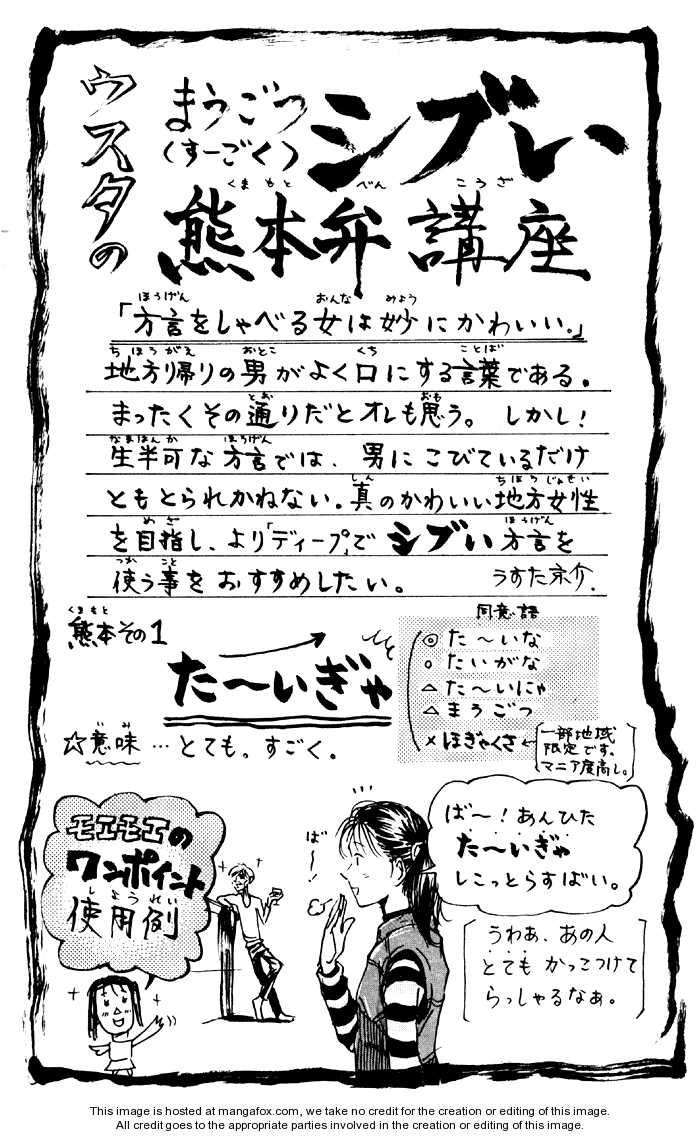 ウスタの
まうごつ
(すーごく)
シブい
くまもとべんこうざ
熊本弁講座
ほうげん おんな みょう
「方言をしゃべる女は妙にかわいい。」
ちほうがえ おとこ くち ことば
地方帰りの男がよく口にする言葉である。
とお おも
まったくその通りだとオレも思う。しかし!
なまはんか ほうげん
生半可な方言では、男にこびているだけ
しん ちほうじょせい
ともとられかねない。真のかわいい地方女性
めざ ほうげん
を目指し、より「ディープ」でシブい方言を
つか こと
使う事をおすすめしたい。 うすた京介.
くまもと
熊本その1
た〜いぎゃ
同意語
◎ た〜いな
○ たいがな
△ た〜いにゃ
△ まうごつ
× ほぎゃくさ
一部地域
限定です。
マニア度高し。
いみ
☆意味…とても。すごく。
モエモエの
ワンポイント
しようれい
使用例
ば〜!
ば〜!あんひた
た〜いぎゃ
しこっとらすばい。
うわぁ、あの人
とても かっこつけて
らっしゃるなぁ。
This image is hosted at mangafox.com, we take no credit for the creation or editing of this image.
All credit goes to the appropriate parties involved in the creation or editing of this image.